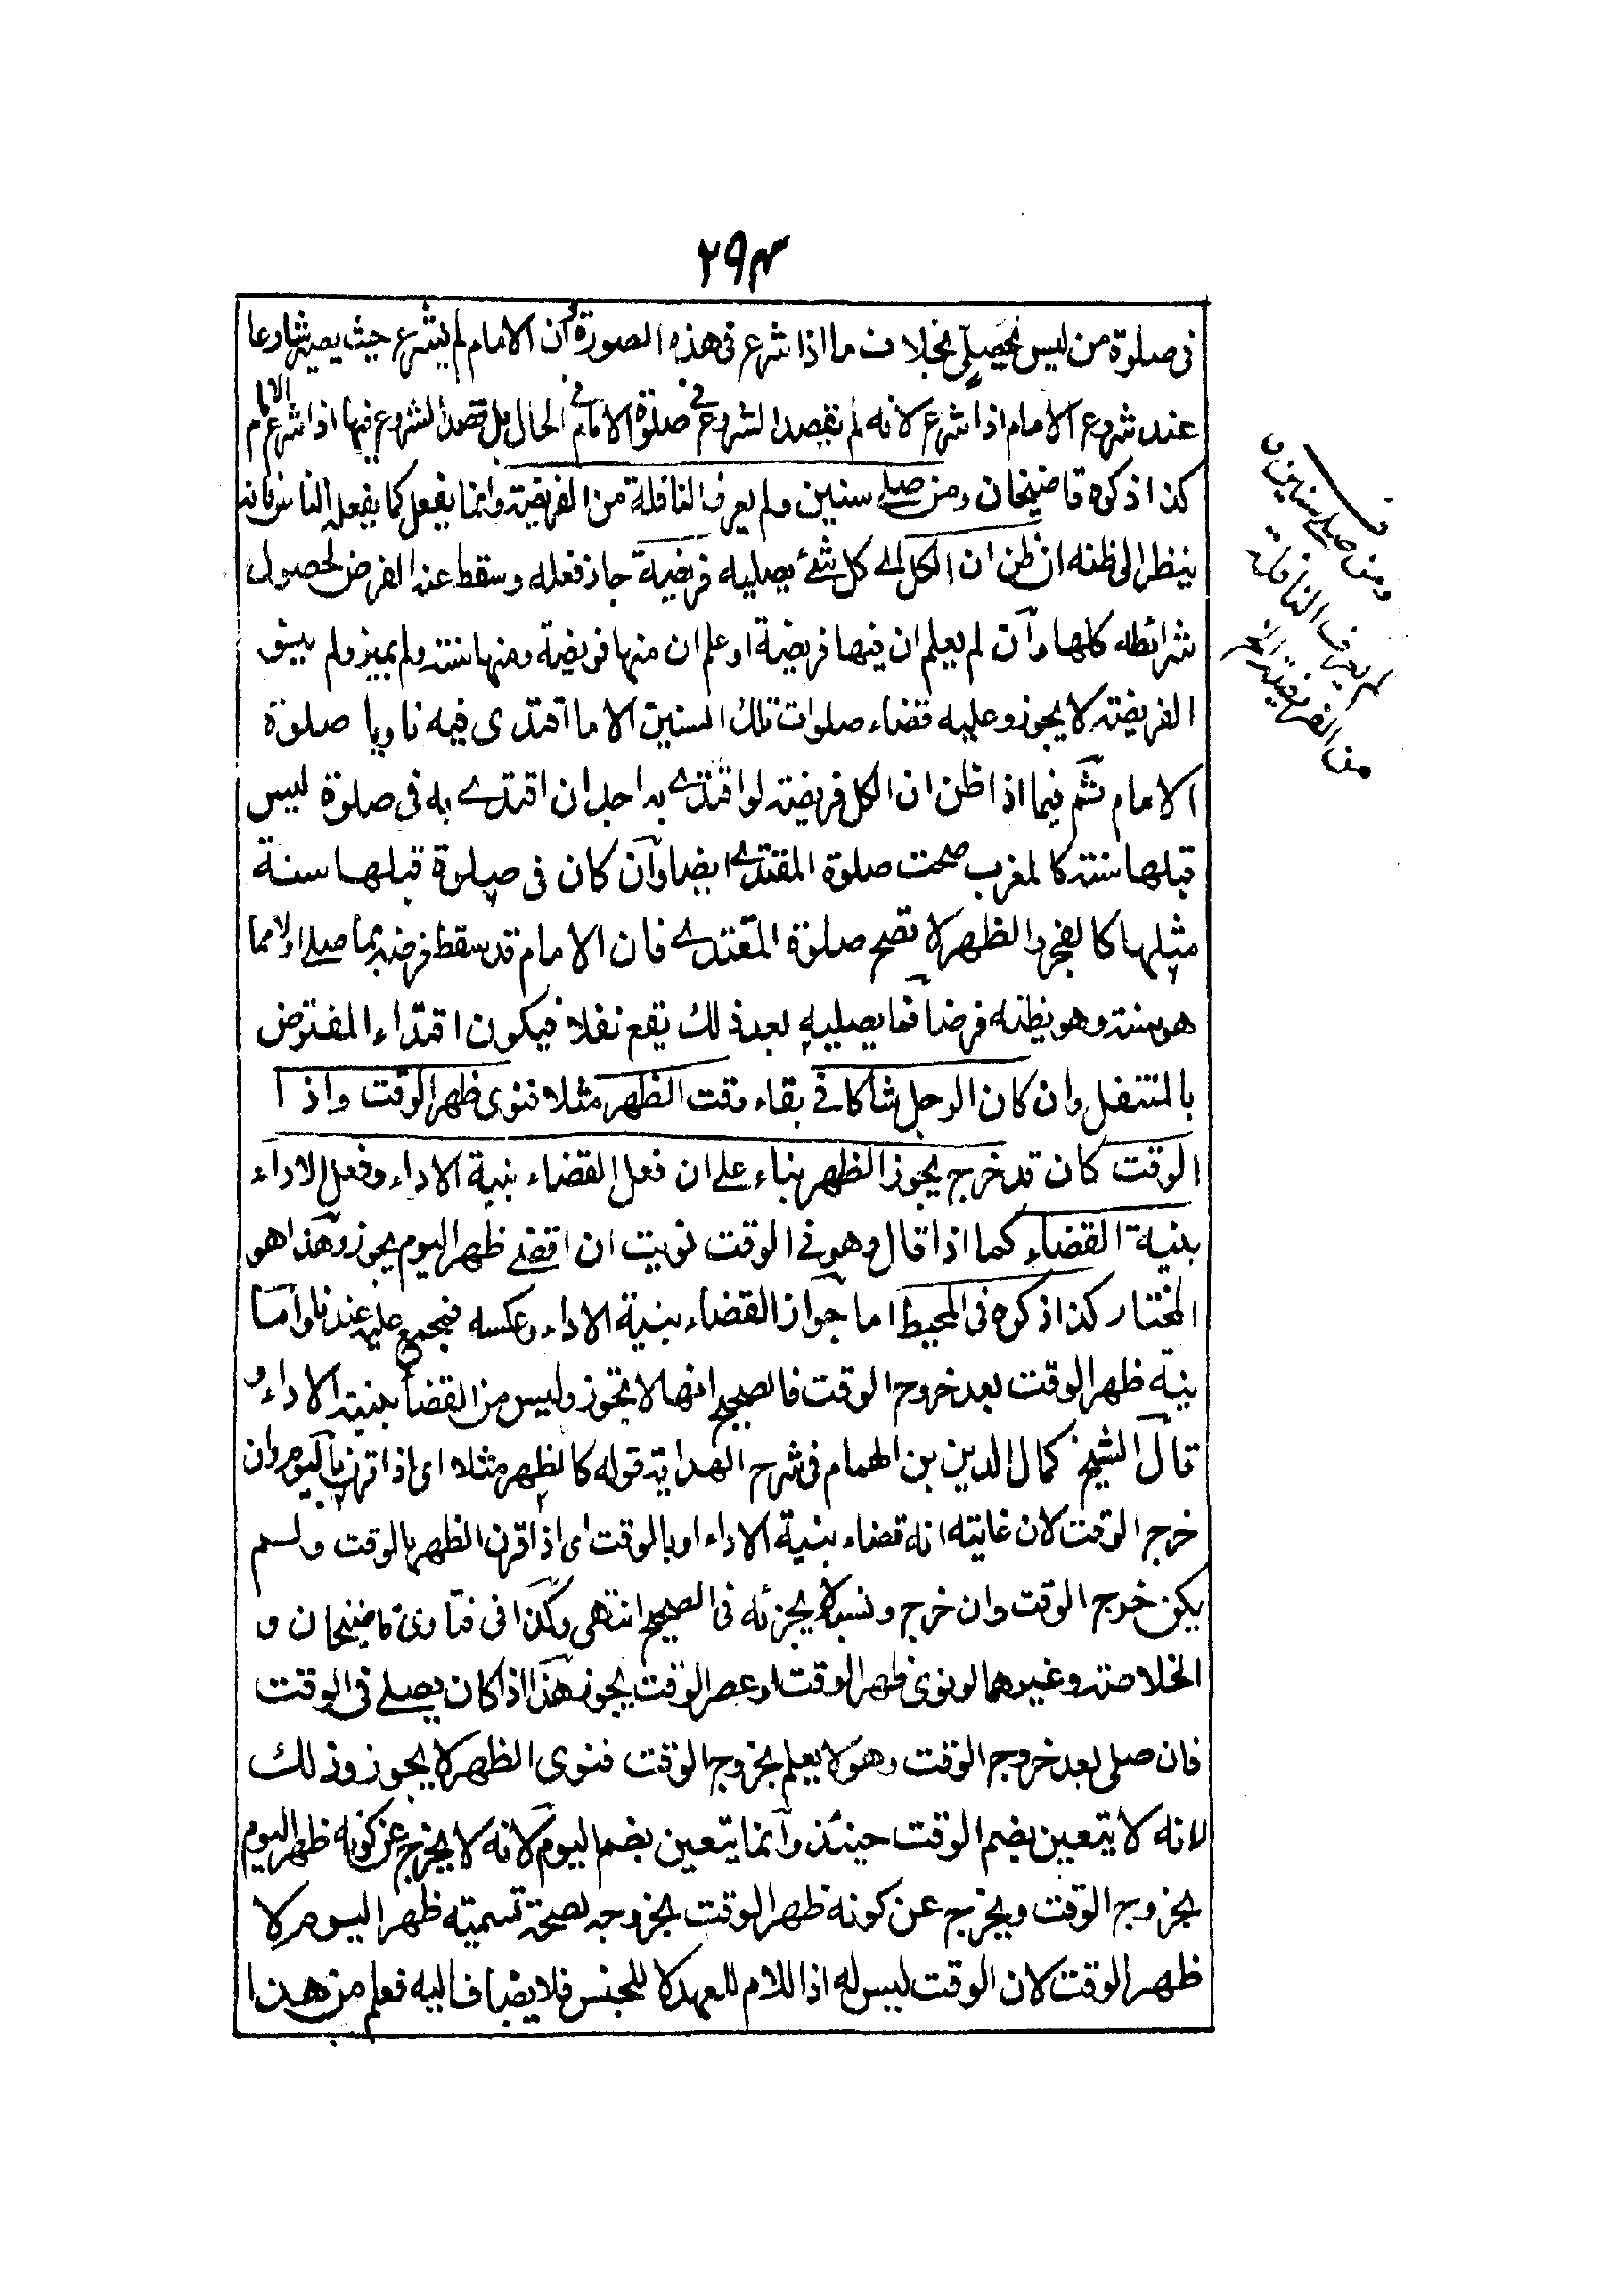 ٢٩٣
فى صلوة من ليس بمصلى بخلاف ما اذا شرع فى هذه الصورة فان الامام لم يشرع حيث يصير شارعا
عند شروع الامام اذا شرع لانه لم يقصد الشروع فى صلوة الامام فى الحال بل قصد الشروع فيها اذا شرع الامام
كذا ذكره قاضيخان ومن صلى سنين ولم يعرف النافلة من الفريضة وانما يفعل كما يفعله الناس فانه
ينظر الى ظنه ان ظن ان الكل اى كل شئ يصليه فريضة جاز فعله وسقط عنه الفرض لحصول
شرائطه كلها وان لم يعلم ان فيها فريضة او علم ان منها فريضة ومنها سنة ولم يميز ولم ينو
الفريضة لا يجوز وعليه قضاء صلوات تلك السنين الا ما اقتدى فيه ناويا صلوة
الامام ثم فيما اذا ظن ان الكل فريضة لو اقتدى به احد ان اقتدى به فى صلوة ليس
قبلها سنة كالمغرب صحت صلوة المقتدى ايضا وان كان فى صلوة قبلها سنة
مثلها كالفجر والظهر لا تصح صلوة المقتدى فان الامام قد سقط فرضه بما صلى اولا مما
هو سنة وهو يظنه فرضا فما يصليه بعد ذلك يقع نفلا فيكون اقتداء المفترض
بالمتنفل وان كان الرجل شاكا فى بقاء وقت الظهر مثلا فنوى ظهر الوقت واذا
الوقت كان قد خرج يجوز الظهر بناء على ان فعل القضاء بنية الاداء وفعل الاداء
بنية القضاء كما اذا قال وهو فى الوقت نويت ان اقضى ظهر اليوم يجوز وهذا هو
المختار كذا ذكره فى المحيط اما جواز القضاء بنية الاداء وعكسه فمجمع عليه عندنا واما
نية ظهر الوقت بعد خروج الوقت فالصحيح انها لا تجوز وليس من القضاء بنية الاداء و
قال الشيخ كمال الدين بن الهمام فى شرح الهداية قوله كالظهر مثلا اى اذا قرن باليوم وان
خرج الوقت لان غايته انه قضاء بنية الاداء او بالوقت اى اذا قرن الظهر بالوقت ولم
يكن خرج الوقت وان خرج ونسيه لا يجزئه فى الصحيح انتهى وكذا فى فتاوى قاضيخان و
الخلاصة وغيرهما لو نوى ظهر الوقت او عصر الوقت يجوز هذا اذا كان يصلى فى الوقت
فان صلى بعد خروج الوقت وهو لا يعلم بخروج الوقت فنوى الظهر لا يجوز وذلك
لانه لا يتعين بضم الوقت حينئذ وانما يتعين بضم اليوم لانه لا يخرج عن كونه ظهر اليوم
بخروج الوقت ويخرج عن كونه ظهر الوقت بخروجه لصحة تسميته ظهر اليوم لا
ظهر الوقت لان الوقت ليس له اذا اللام للعهد لا للجنس فلا يضاف اليه فعلم من هذا
ومن صلى سنين و
لم يعرف النافلة
من الفريضة الخ